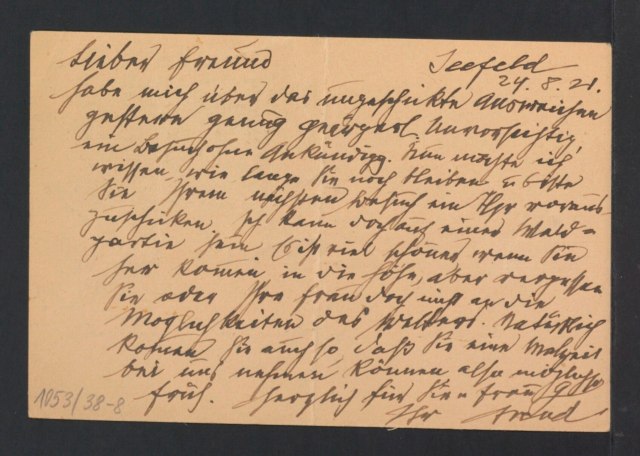 Lieber Freund
Seefeld
24. 8. 21.
habe mich über das ungeschickte Ausweichen
gestern genug geärgert. Unvorsichtig,
ein Besuch ohne Ankündigg. Nun möchte ich
wissen, wie lange Sie noch bleiben u bitte
Sie Ihrem nächsten Besuch ein voraus-
zuschicken. Ich kann doch auf einer Wald-
partie sein. Es ist viel schöner wenn Sie
her komen in die Höhe, aber vergessen
Sie oder Ihre Frau doch nicht an die
Möglichkeiten des Wetters. Natürlich
komen Sie auch so, daß Sie eine Malzeit
bei uns nehmen können also möglichst
früh. Herzlich für Sie u Frau
Ihr
1053/38-8